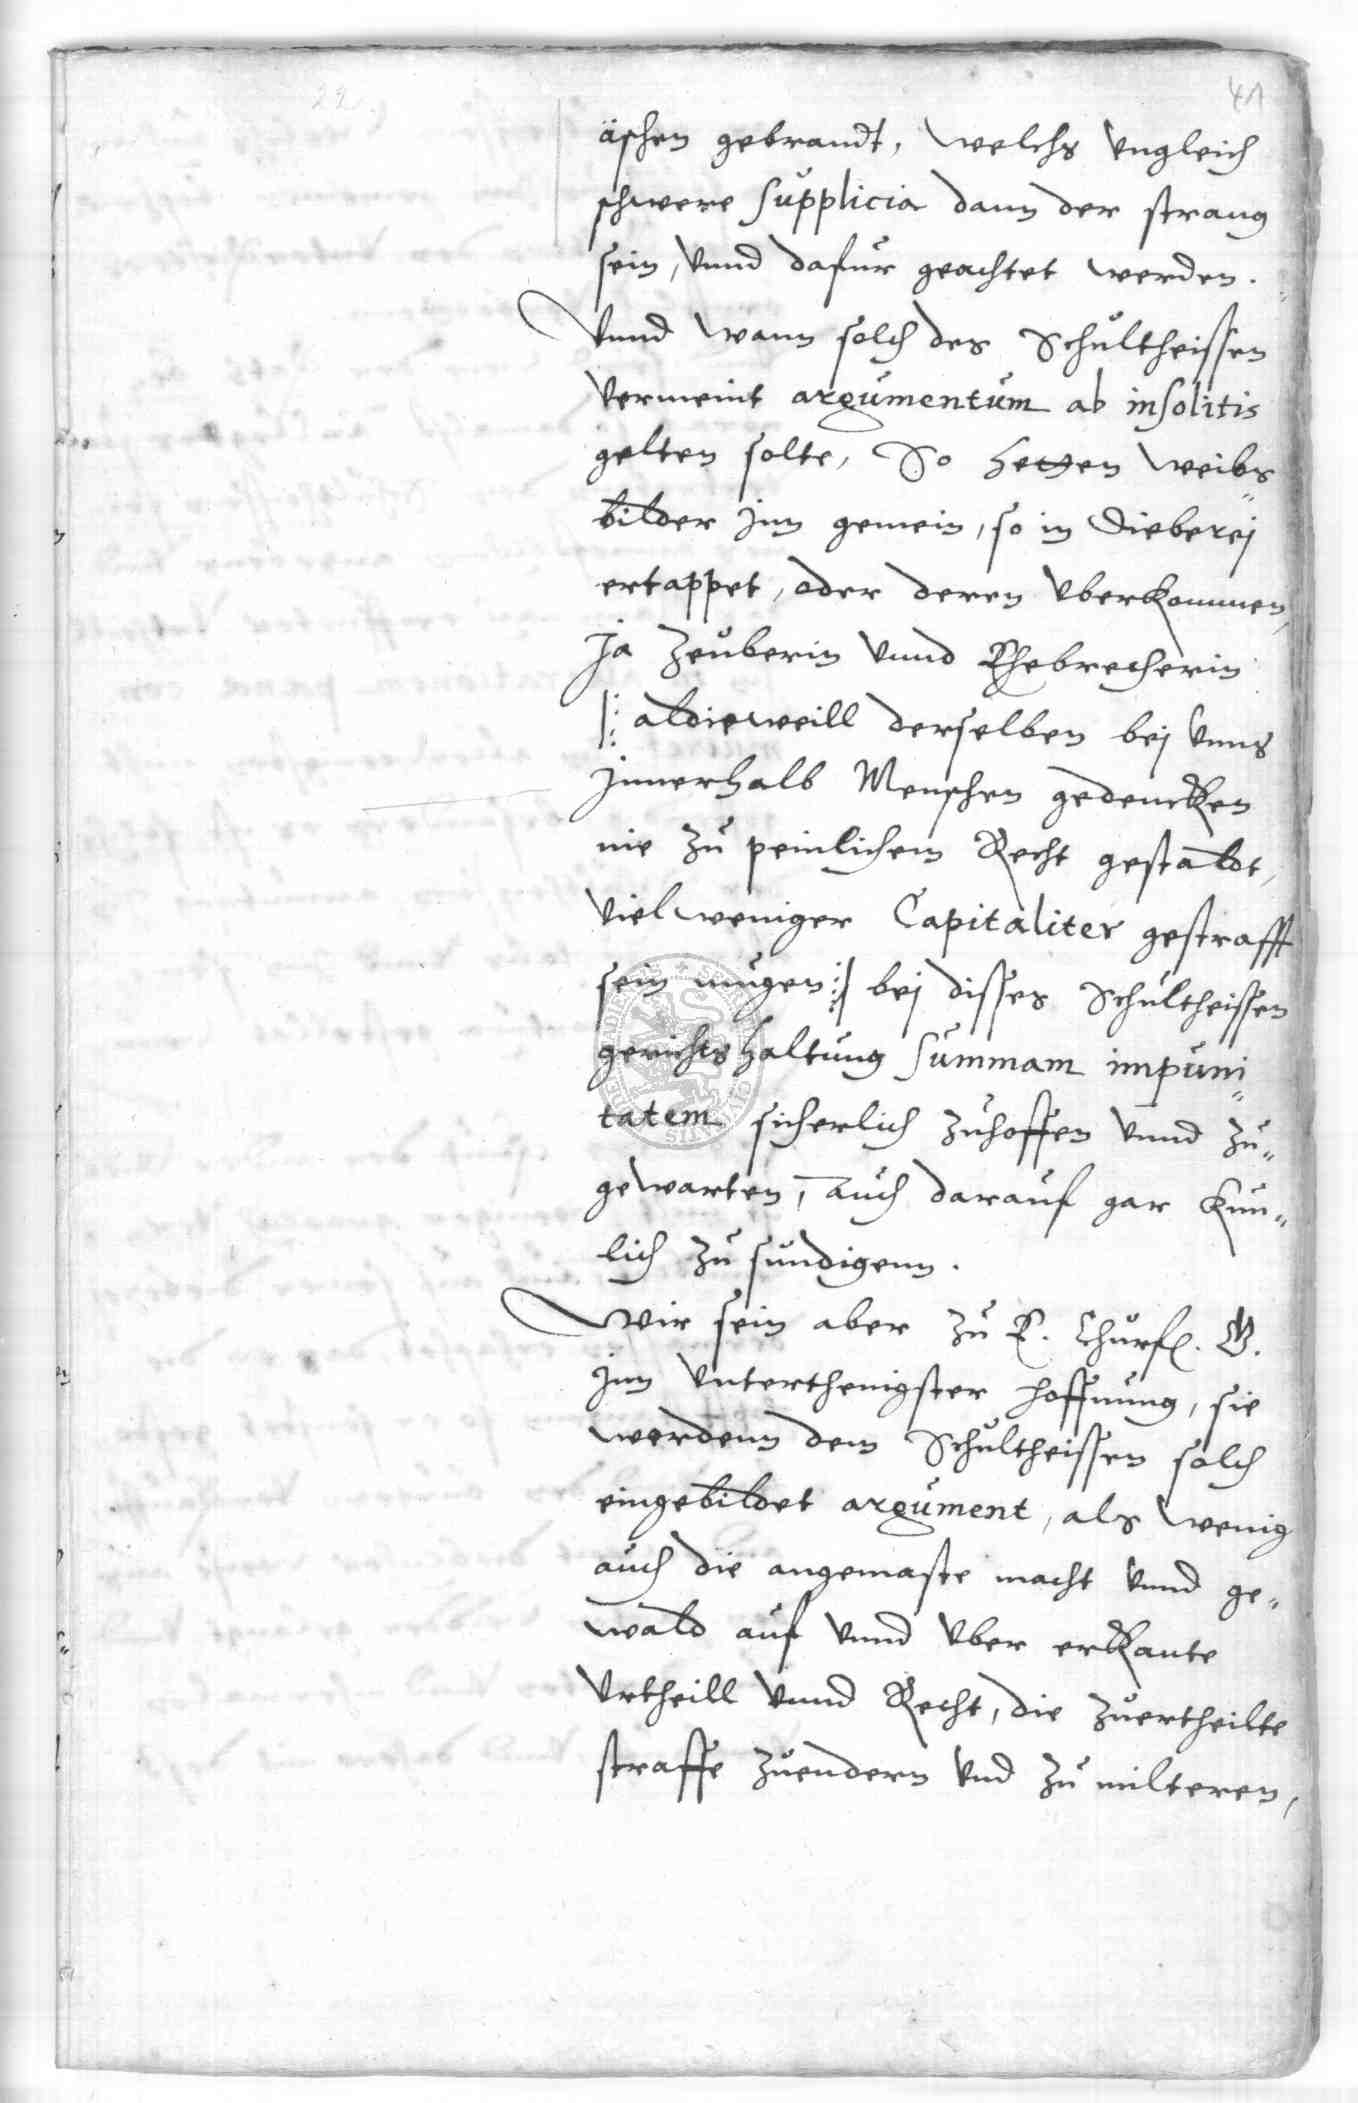 41
äschen gebrandt, welchs vngleich
schwere supplicia dann der strang
sein, vnnd dafur geachtet werden.
Vnnd wann solch des Schultheissen
vermeint argumentum ab insolitis
gelten solte, So hetten weibs
bilder inn gemein, so in Dieberej
ertappet, oder deren vberkommen,
Ja Zeuberin vnnd Ehebrecherin
|: aldieweill derselben bej vnns
Innerhalb Menschen gedencken
nie zu peinlichem Recht gestaldt,
viel weniger Capitaliter gestrafft
sein mugen :| bej disses Schultheissen
gerichts haltung summam impuni„
tatem sicherlich zuhoffen vnnd zu„
gewarten, auch darauf gar kun„
lich zu sundigenn.
Wir sein aber zu E. Churfl. G.
Inn vnterthenigster hoffnung, sie
werdenn dem Schultheissen solch
eingebildet argument, als wenig
auch die angemaste macht vnnd ge„
wald auf vnnd vber erkante
vrtheill vnnd Recht, die zuertheilte
straffe zuendern vnd zu milteren,